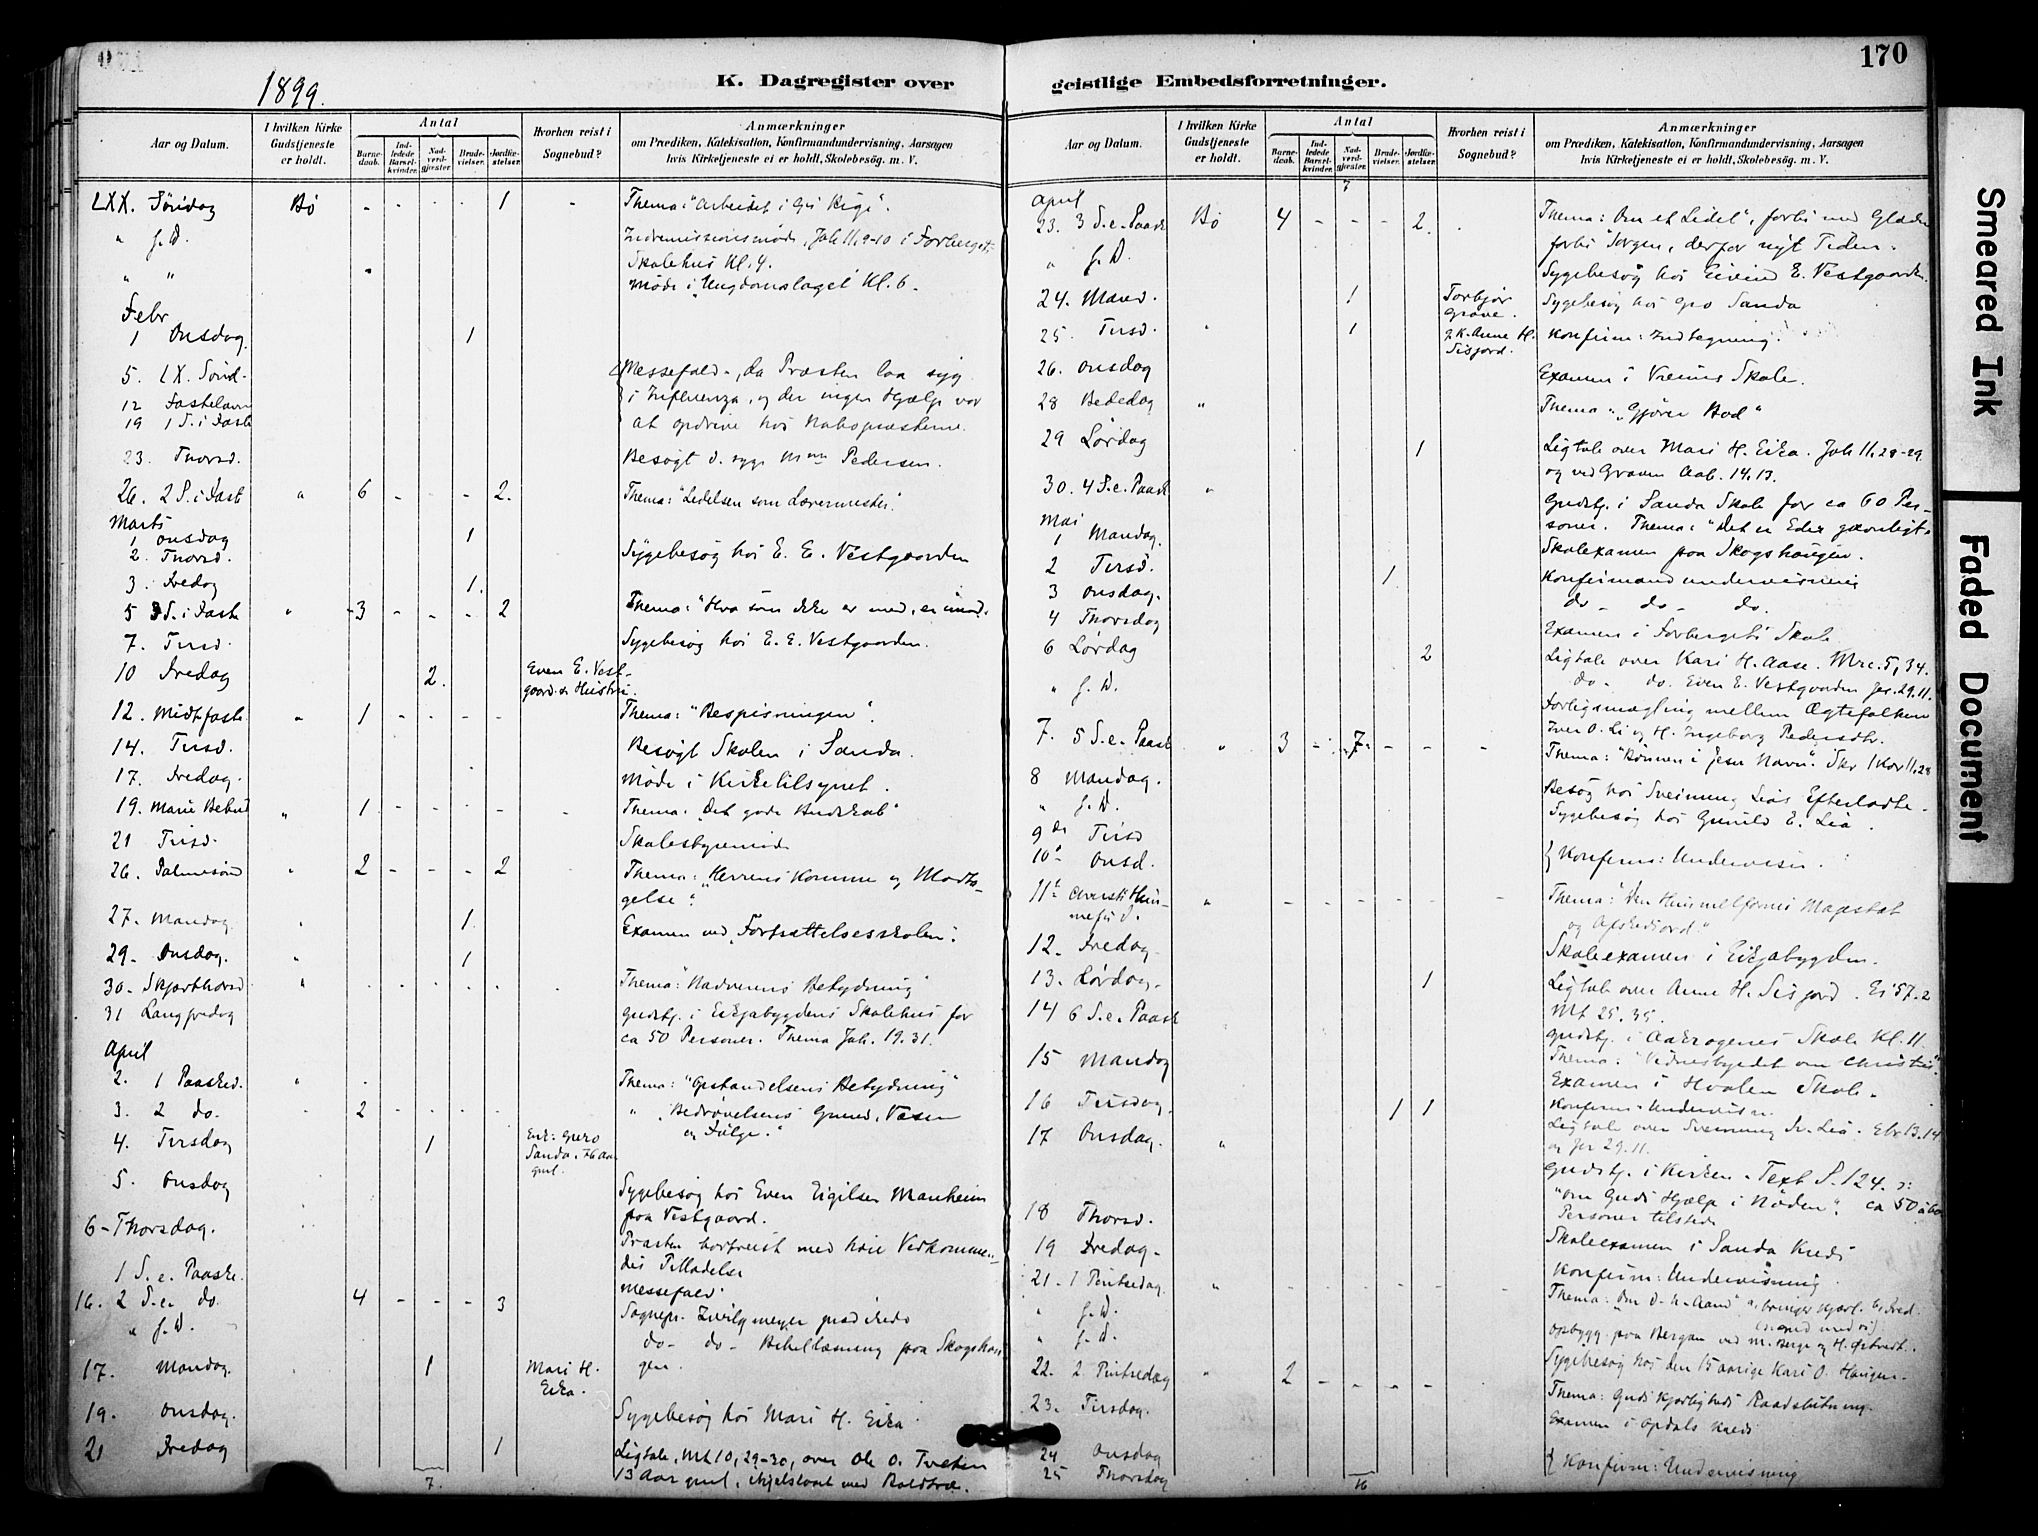 1899.
K. Dagregister over
Aar og Datum.
I hvilken Kirke Gudstjeneste er holdt.
Antal
Barnedaab.
Indledede Barselkvinder.
Nadverdgjester.
Brudevielser.
Jordfæstelser.
Hvorhen reist i Sognebud?
Anmærkninger
om Prædiken, Katekisation, Konfirmandundervisning, Aarsagen
hvis Kirketjeneste ei er holdt, Skolebesög. m. V.
LXX. Söndag Bö - - - - 1 - Thema: "Arbeidet i Gds Rige".
" s. D. Indremissionsmöde, Joh 11, 9-10 i Forbergets
Skolehus Kl. 4.
" " Möde i Ungdomslaget Kl. 6.
Febr
1 Onsdag 1
5. LX. Sönd. Messefald, da Præsten laa syg
12 Fastelavn i Influenza, og der ingen Hjælp var
19 1 S. i Faste at opdrive hos Nabopræsterne.
23. Thorsd. Besögt d. syge Pedersen.
26. 2 S. i Fast " 6 - - - 2. Thema: "Lidelsen som Læremester".
Marts
1 Onsdag 1
2. Thorsd. Sygebesög hos E. E. Vestgaarden
3. Fredag 1.
5 3 S. i Faste " 3 - - - 2 Thema: "Hva som ikke er med, er imod.
7. Tirsd. Sygebesög hos E. E. Vestgaarden.
10 Fredag 2. Even E. Vest-
gaard og Hustru.
12. Midtfaste " 1 - - - - Thema: "Bespisningen".
14. Tirsd. Besögt Skolen i Sanda.
17. Fredag. Möde i Kirketilsynet.
19. Marie Bebud " 1 - - - - - Thema: "Det gode Budskab"
21 Tirsd. Skolestyremöde
26. Palmesönd " 2 - - - 2 Thema: "Herrens Komme og Modta-
gelse".
27. Mandag. 1. Examen ved "Fortsættelsesskolen".
29. Onsdag. 1
30. Skjærthorsd " Thema: "Nadverens Betydning"
31 Langfredag Gudstj. i Eikjabygdens Skolehus for
ca 50 Personer. Thema Joh. 19. 31.
April
2. 1 Paasked. " Thema: "Opstandelsens Betydning"
3. 2 do. 2 - - - - " "Bedrövelsens Grund, Væsen
og Fölge."
4. Tirsdag 1 Enk: Guro
Sanda, 76 Aar
gml.
5. Onsdag Sygebesög hos Even Eigilsen Manheim
paa Vestgaard.
6 - Thorsdag. Præsten bortreist med höie Vedkommen-
des Tilladelse
1 S. e. Paaske. Messefald.
16. 2 S. e. do. 4 - - - 3 Sognepr. Zwilgmeyer prædikede
" s. D. do - do - Bibellæsning paa Skogshau
gen.
17. Mandag. 1 Mari H.
Eika.
19. Onsdag. Sygebesög hos Mari H. Eika.
21 Fredag 1 Ligtale, Mt 10, 29-30, over Ole O. Tveten
13 Aar gml.
7.
170
geistlige Embedsforretninger.
Aar og Datum.
I hvilken Kirke Gudstjeneste er holdt.
Antal
Barnedaab.
Indledede Barselkvinder.
Nadverdgjester.
Brudevielser.
Jordfæstelser.
Hvorhen reist i Sognebud?
Anmærkninger
om Prædiken, Katekisation, Konfirmandundervisning, Aarsagen
hvis Kirketjeneste ei er holdt, Skolebesög. m. V.
7
April
23. 3 S. e. Paask Bö 4 - - - 2. Thema: "Om et Lidet", forbi med Glæden
forbi Sorgen, derfor nyt Tiden.
" s. D. Sygebesög hos Eivind E. Vestgaarden.
24. Mand. 1 Torbjör
Grave. Sygebesög hos Gro Sanda
25. Tirsd. " 1 g. K. Anne H.
Sisjord. Konfirm: Indtegning.
26. Onsdag Examen i Skole.
28 Bededag " Thema "Gjörer Bod"
29 Lördag 1 Ligtale over Mari H. Eika. Joh 11. 28-29
og ved Graven Aab. 14.13.
30. 4 S. e. Paask " Gudstj. i Sanda Skole for ca 60 Per-
soner. Thema: "Det er Eder gavnligt"
Mai
1 Mandag. Skoleexamen paa Skogshaugen.
2 Tirsd. 1. Konfirmandundervisning
3 Onsdag. do - do - do.
4 Thorsdag Examen i Forbergets Skole
6 Lördag 2 Ligtale over Kari H. Aase. Mrc. 5, 34.
do. do. Even E. Vestgaarden Jer. 29. 11.
" s. D. Forligsmægling mellem Ægtefolkene
Iver O. Li og H. Ingeborg Pedersdtr.
7. 5 S. e. Paask " 3 - 7 - - - Thema: "Bönnen i Jesu Navn". Skr 1 Kor 11, 28
8 Mandag. Besög hos Sveinung Lias Efterladte.
" s. D. Sygebesög hos Gunild E. Lia.
9de Tirsd
10. Onsd. } Konfirm: Undervisn.
11te Christi Him-
melf. D. " - - - - - - Thema: "Den Himmelfarnes Majestæt
og Afskedsord."
12. Fredag. Skoleexamen i Eikjabygden.
13. Lördag. 1 Ligtale over Anne H. Sisjord. Es 57. 2
Mt 25. 35.
14 6 S. e. Paask Gudstj. i Skole Kl. 11.
Thema: "Vidnesbyrdet om Christus".
15 Mandag Examen i Hvalen Skole.
16 Tirsdag. 1 1 Konfirm. Undervisn.
Ligtale over Sveinung Lia. Ebr 13.14
og Jer 29. 11.
17 Onsdag. " Gudstj. i Kirken. Text S. 124.
"Om Guds Hjælp i Nöden". ca 50 à 60
Personer tilstede
18 Thorsd. Skoleexamen i Sanda Kreds
19 Fredag. Konfirm: Undervisning
21 - 1 Pintsedag " - - - - - - Thema: "Om d. H. Aand"
" s. D. opbygg. paa Bergan ved M. Berge og H.
" s. D. Sygebesög hos den 15 aarige Kari O. Haugen.
22. 2 Pintsedag " 2 - - - - - Thema: Guds Kjærligheds Raadslutning.
23. Tirsdag. Examen i Opdals Kreds
24 Onsdag
25 Thorsdag } Konfirm: Undervisning
16
Smeared Ink
Faded Document